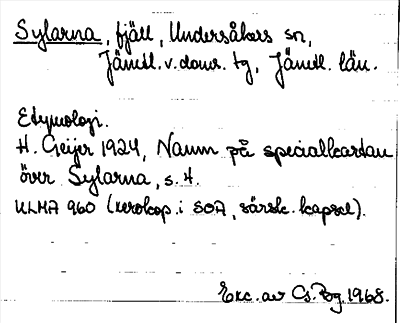 Sylarna, fjäll, Undersåkers sn,
Jämtl. v. doms. tg, Jämtl. län.
Etymologi.
H. Geijer 1924, Namn på specialkartan
över Sylarna, s. 4.
ULMA 960 (xerokop. i SOA, särsk. kapsel).
Exc. av Cs. Bg. 1968.